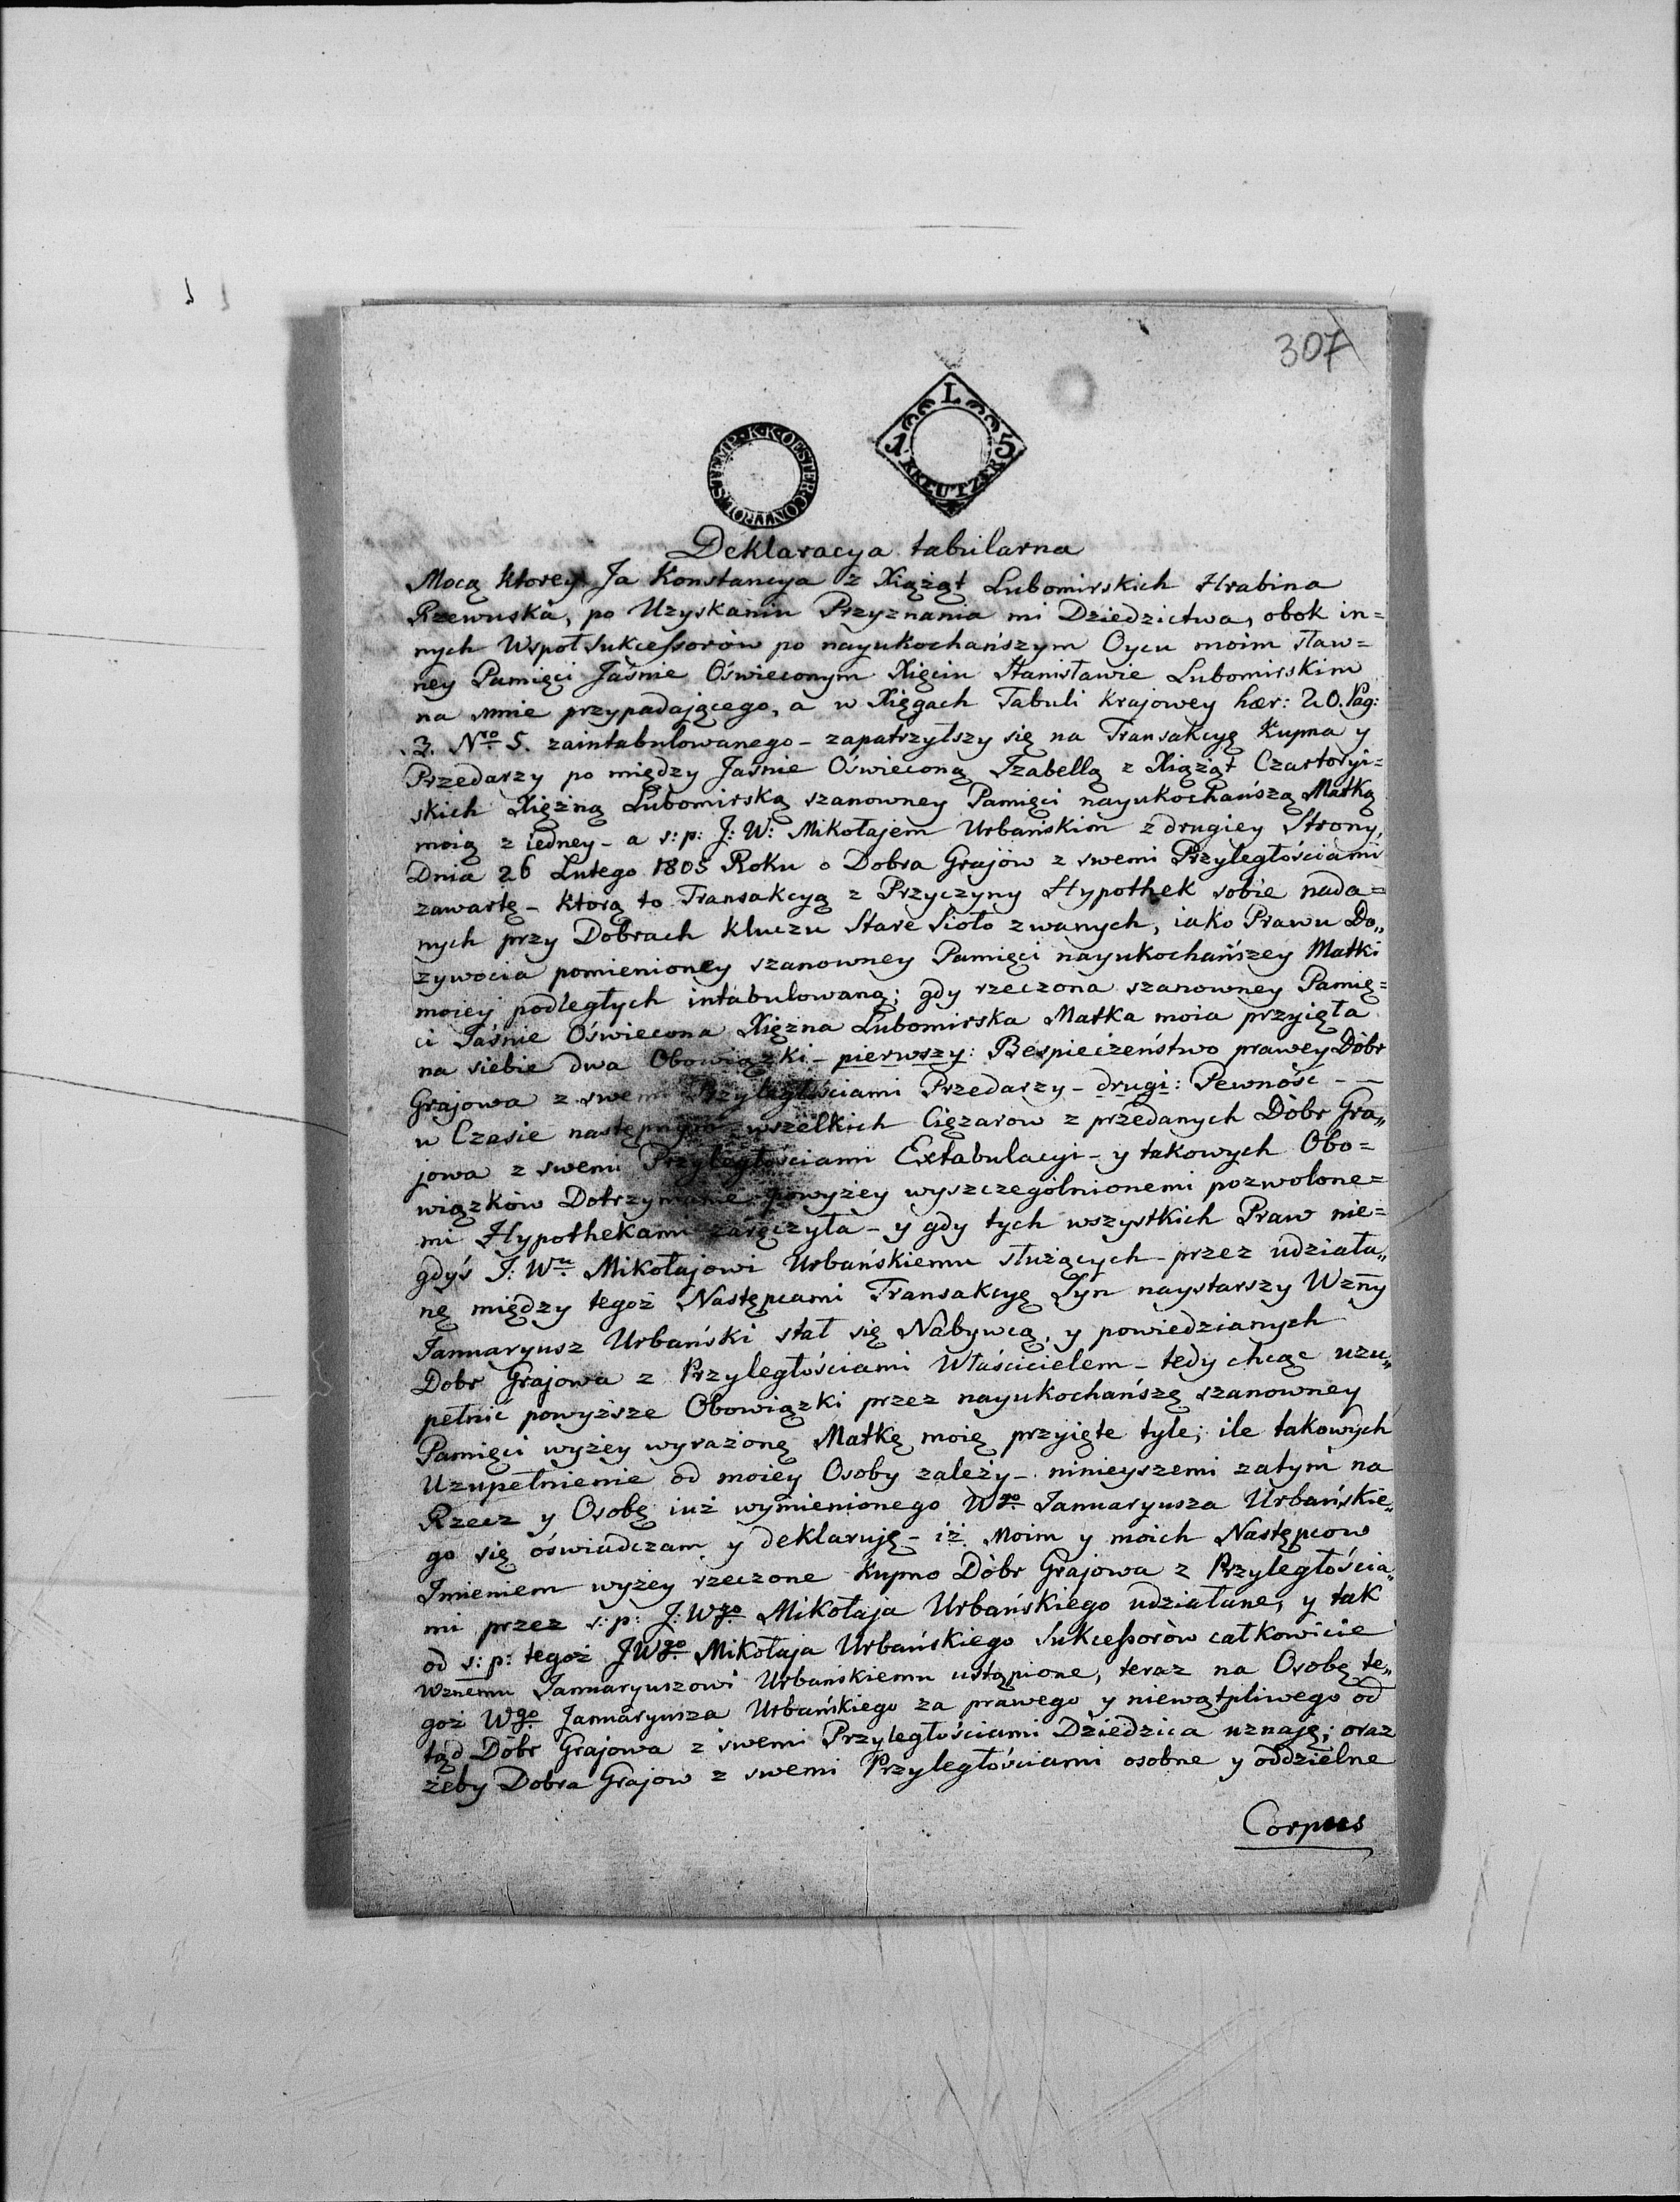 307
L
15
KREUTZER
K·K·OESTER·CONTROL·STEMP·
Deklaracya tabularna
Mocą ktorey Ja Konstancya z Xiążąt Lubomirskich Hrabina
Rzewuska, po Uzyskaniu Przyznania mi Dziedzictwa, obok in=
nych Wspoł Sukceßorów po nayukochańszym Oycu moim sław=
ney Pamięci Jaśnie Oświeconym Xięciu Stanisławie Lubomirskim
na mnie przypadaiącego, a w Xięgach Tabuli Krajowey hær: 20. Pag:
3. Nro 5. zaintabulowanego – zapatrzyłszy się na Transakcyę Kupna y
Przedarzy po między Jaśnie Oświeconą Izabellą z Xiążąt Czartoryi=
skich Xiężną Lubomirską szanowney Pamięci nayukochańszą Matką
moią z iedney – a s: p: J: W: Mikołajem Urbańskim z drugiey Strony,
Dnia 26 Lutego 1805 Roku o Dobra Grajów z swemi Przyległościami
zawartę – ktorą to Transakcyą z Przyczyny Hypothek sobie nada=
nych przy Dobrach kluczu Stare Sioło zwanych, iako Prawu Do„
zywocia pomienioney szanowney Pamięci nayukochańszey Matki
moiey podległych intabulowaną; gdy rzeczona szanowney Pamię=
ci Jaśnie Oświecona Xiężna Lubomirska Matka moia przyięła
na siebie dwa Obowiązki – pierwszy: Bespieczeństwo prawey Dóbr
Grajowa z swemi Przyległościami Przedarzy – drugi: Pewność – –
w Czasie następnym wszelkich Ciężarow z przedanych Dóbr Gra„
jowa z swemi Przyległościami Extabulacyi – y takowych Obo=
wiązków Dotrzymanie powyżey wyszczególnionemi pozwolone=
mi Hypothekami zaręczyła – y gdy tych wszystkich Praw nie=
gdyś J: Wu Mikołajowi Urbańskiemu służących – przez udziała„
nę między tegoż Następcami Transakcyę Syn naystarszy Wzny
Januaryusz Urbański stał się Nabywcą, y powiedzianych
Dobr Grajowa z Przyległościami Właścicielem – tedy chcąc uzu„
pełnić powyższe Obowiązki przez nayukochańszę szanowney
Pamięci wyżey wyrażonę Matkę moię przyięte tyle, ile takowych
Uzupełnienie od moiey Osoby zależy – ninieyszemi zatym na
Rzecz y Osobę iuż wymienionego Wgo Januaryusza Urbańskie„
go się oświadczam y deklaruję – iż Moim y moich Następcow
Imieniem wyżey rzeczone Kupno Dóbr Grajowa z Przyległościa„
mi przez s: p: J: Wgo Mikołaja Urbańskiego udziałane, y tak
od s: p: tegoż JWgo Mikołaja Urbańskiego Sukceßorów całkowicie
Wznemu Januaryuszowi Urbańskiemu ustąpione, teraz na Osobę te„
goż Wgo Januaryusza Urbańskiego za prawego y niewątpliwego od
tąd Dóbr Grajowa z swemi Przyległościami Dziedzica uznaję; oraz
żeby Dobra Grajow z swemi Przyległościami osobne y oddzielne
Corpus